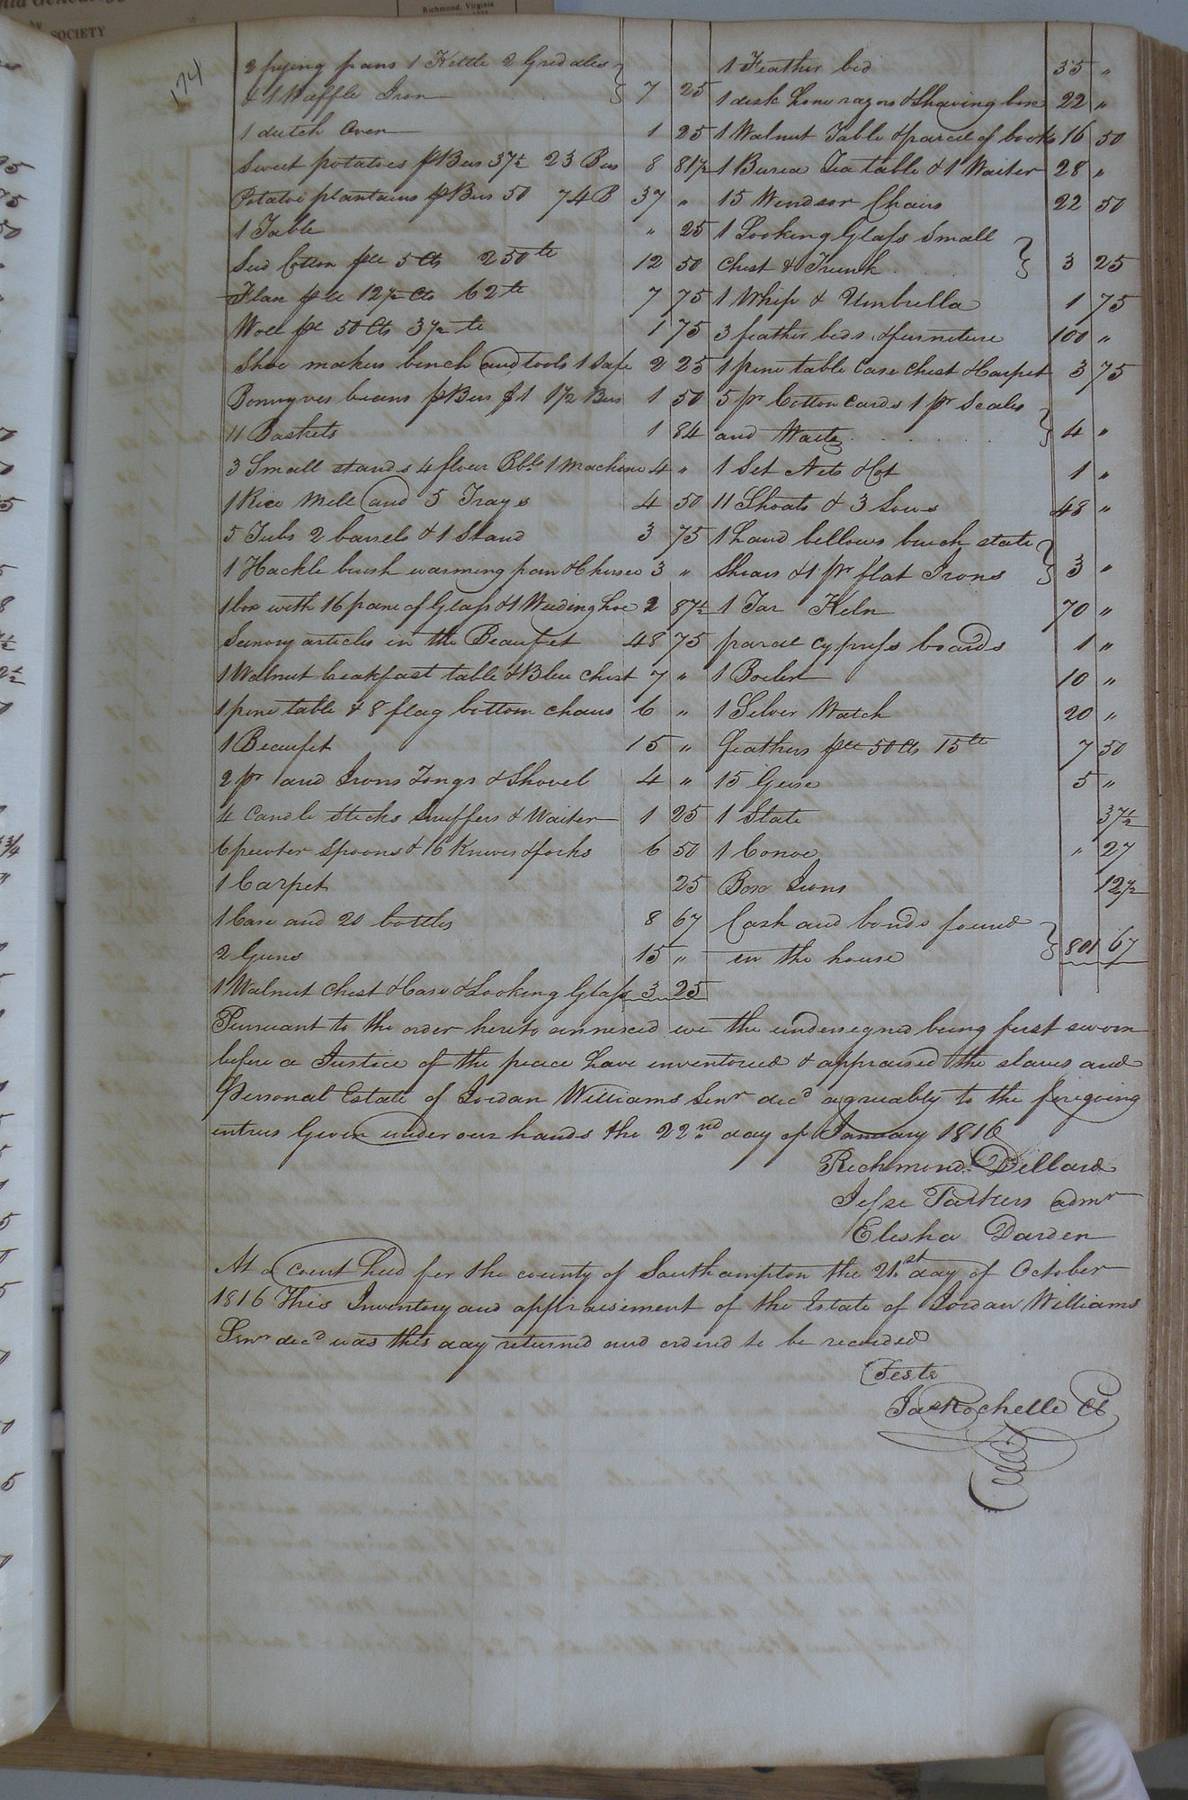 SOCIETY
Richmond, Virginia
174
2 frying pans 1 Kettle 2 Gredales
& 1 Waffle Iron 7 25
1 dutch Oven 1 25
Sweet potatoes pBus 37½ 23 Bus 8 81½
Potatoe plantains pBus 50 74 B 37 "
1 Table " 25
Seed Cotton pr 5 Cts 250 lb 12 50
Flax pr 12½ Cts 62 lb 7 75
Wool pr 50 Cts 3½ lb 1 75
Shoe makers bench and tools 1 Safe 2 25
Bonnyves beans pBus $1 1½ Bus 1 50
11 Baskets 1 84
3 Small stands 4 flour Bbls 1 Machine 4 "
1 Rice Mill and 5 Trays 4 50
5 Tubs 2 barrels & 1 Stand 3 75
1 Hackle brush warming pan & 3 "
1 box with 16 pane of Glass & 1 Weeding hoe 2 87½
Sunory articles in the Beaufet 48 75
1 Walnut breakfast table & Blue Chest 7 "
1 pine table & 8 flag bottom chairs 6 "
1 Beaufet 15 "
2 pr and Irons Tongs & Shovel 4 "
4 Candle Sticks Snuffers & Waiter 1 25
6 pewter Spoons & 16 Knives & forks 6 50
1 Carpet 25
1 Case and 20 bottles 8 67
2 Guns 15 "
1 Walnut Chest & Case & Looking Glass 3 25
1 Feather bed 35 "
1 desk hone razors & Shaving box 22 "
1 Walnut Table & parcel of books 16 50
1 Burea Tea table & 1 Waiter 28 "
15 Windsor Chairs 22 50
1 Looking Glass Small
Chest & Trunk 3 25
1 Whip & Umbrella 1 75
3 feather beds & furniture 100 "
1 pine table Case Chest & Carpet 3 75
5 pr Cotton Cards 1 pr Scales
and Waits 4 "
1 Set 1 "
11 Shoats & 3 Sows 48 "
1 hand bellows
Shears & 1 pr flat Irons 3 "
1 Tar Keln 70 "
parcel cypress boards 1 "
1 Boiler 10 "
1 Silver Watch 20 "
feathers pr 50 Cts 15 lb 7 50
15 Geese 5 "
1 Slate 37½
1 Conoe " 27
Box Irons 12½
Cash and bonds found
in the house 801 67
Pursuant to the order hereto annexed we the undersigned being first sworn
before a Justice of the peace have inventoried & appraised the slaves and
Personal Estate of Jordan Williams Senr decd agreably to the foregoing
entries Given under our hands the 22nd day of January 1816
Richmond Dillard
Jesse Parkers admr
Elisha Darden
At a Court held for the county of Southampton the 21st day of October
1816 This Inventory and appraisement of the Estate of Jordan Williams
Senr decd was this day returned and ordered to be recorded
Teste
Jas Rochelle Cl